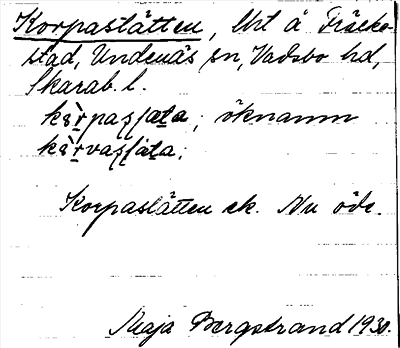 Korpaslätten, lht å Fräcke-
stad, Undenäs sn, Vadsbo hd,
Skarab. l.
kɷ̀rpaʃʃæta; öknamn
kɷ̀rvaʃʃæta;
Korpaslätten ek. Nu öde.
Maja Bergstrand 1930.